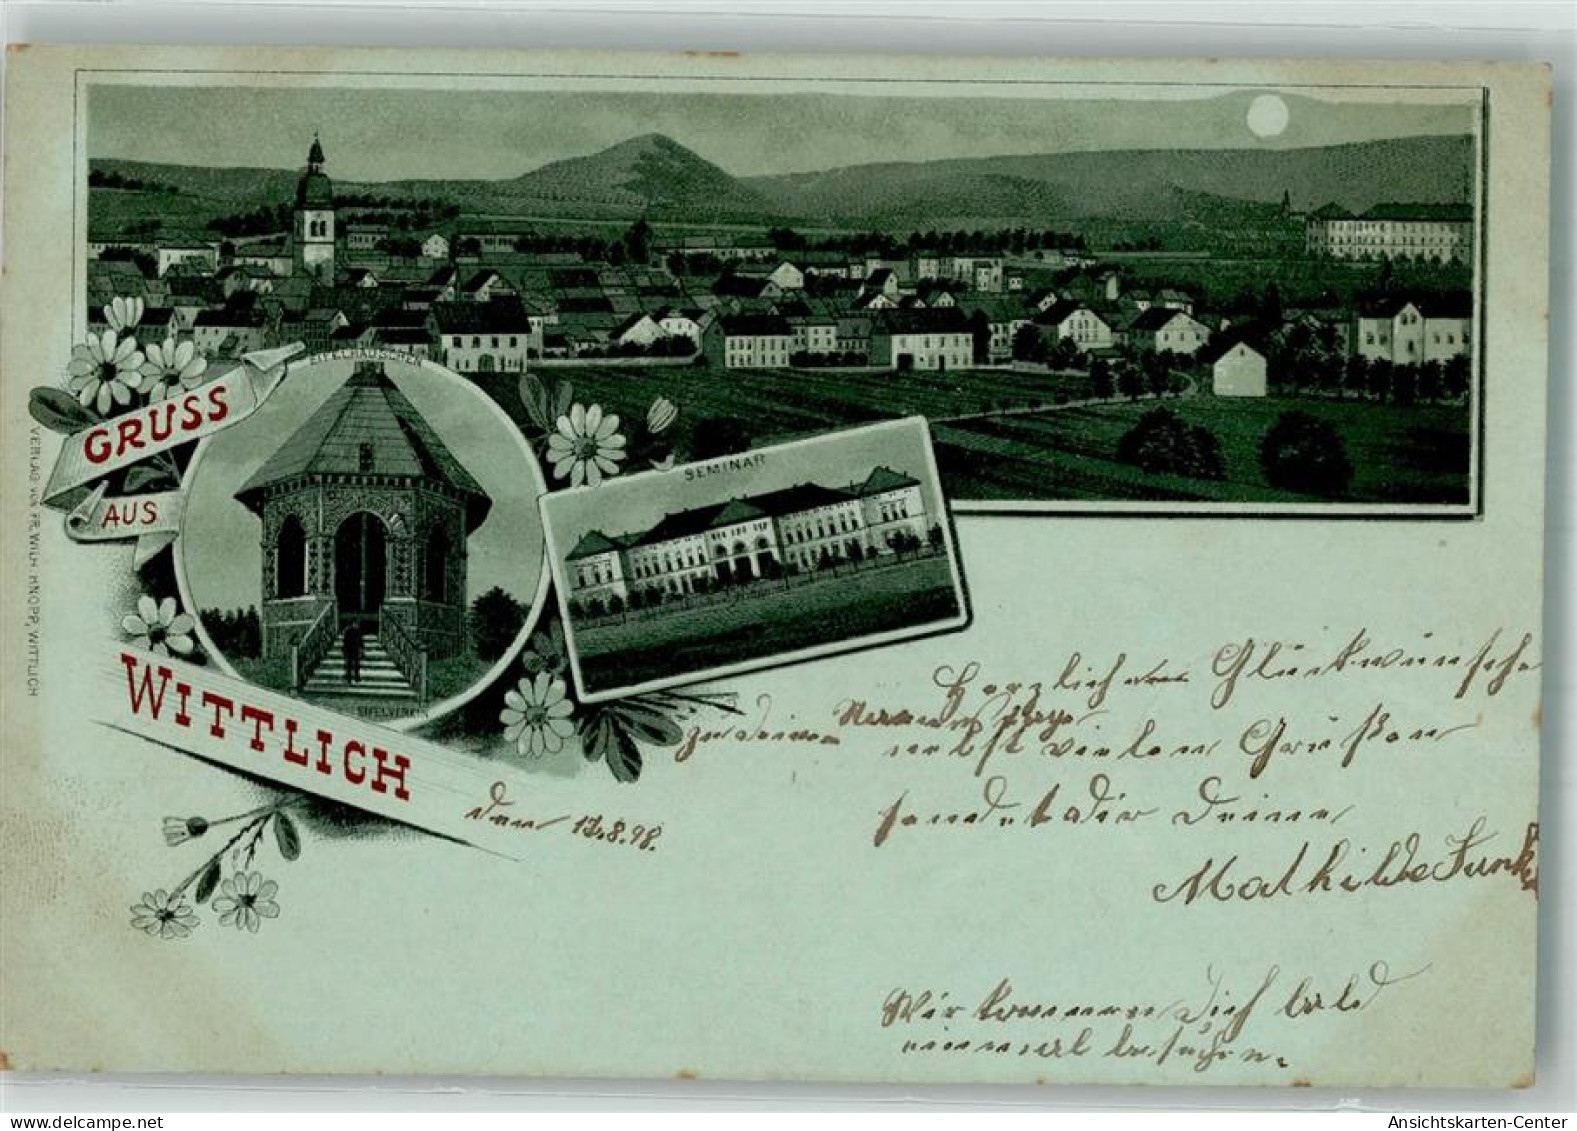 EIFELHÄUSCHEN
GRUSS
AUS
WITTLICH
SEMINAR
EIFELVEREIN
VERLAG VON FR. WILH. KNOPP, WITTLICH
den 17.8.98.
Herzlichen Glückwünsche
zu deinem Namenstage
nebst vielen Grüßen
sendet dir Deine
Mathilde Funk
Wir kommen Dich bald
einmal besuchen.
www.delcampe.net
Ansichtskarten-Center